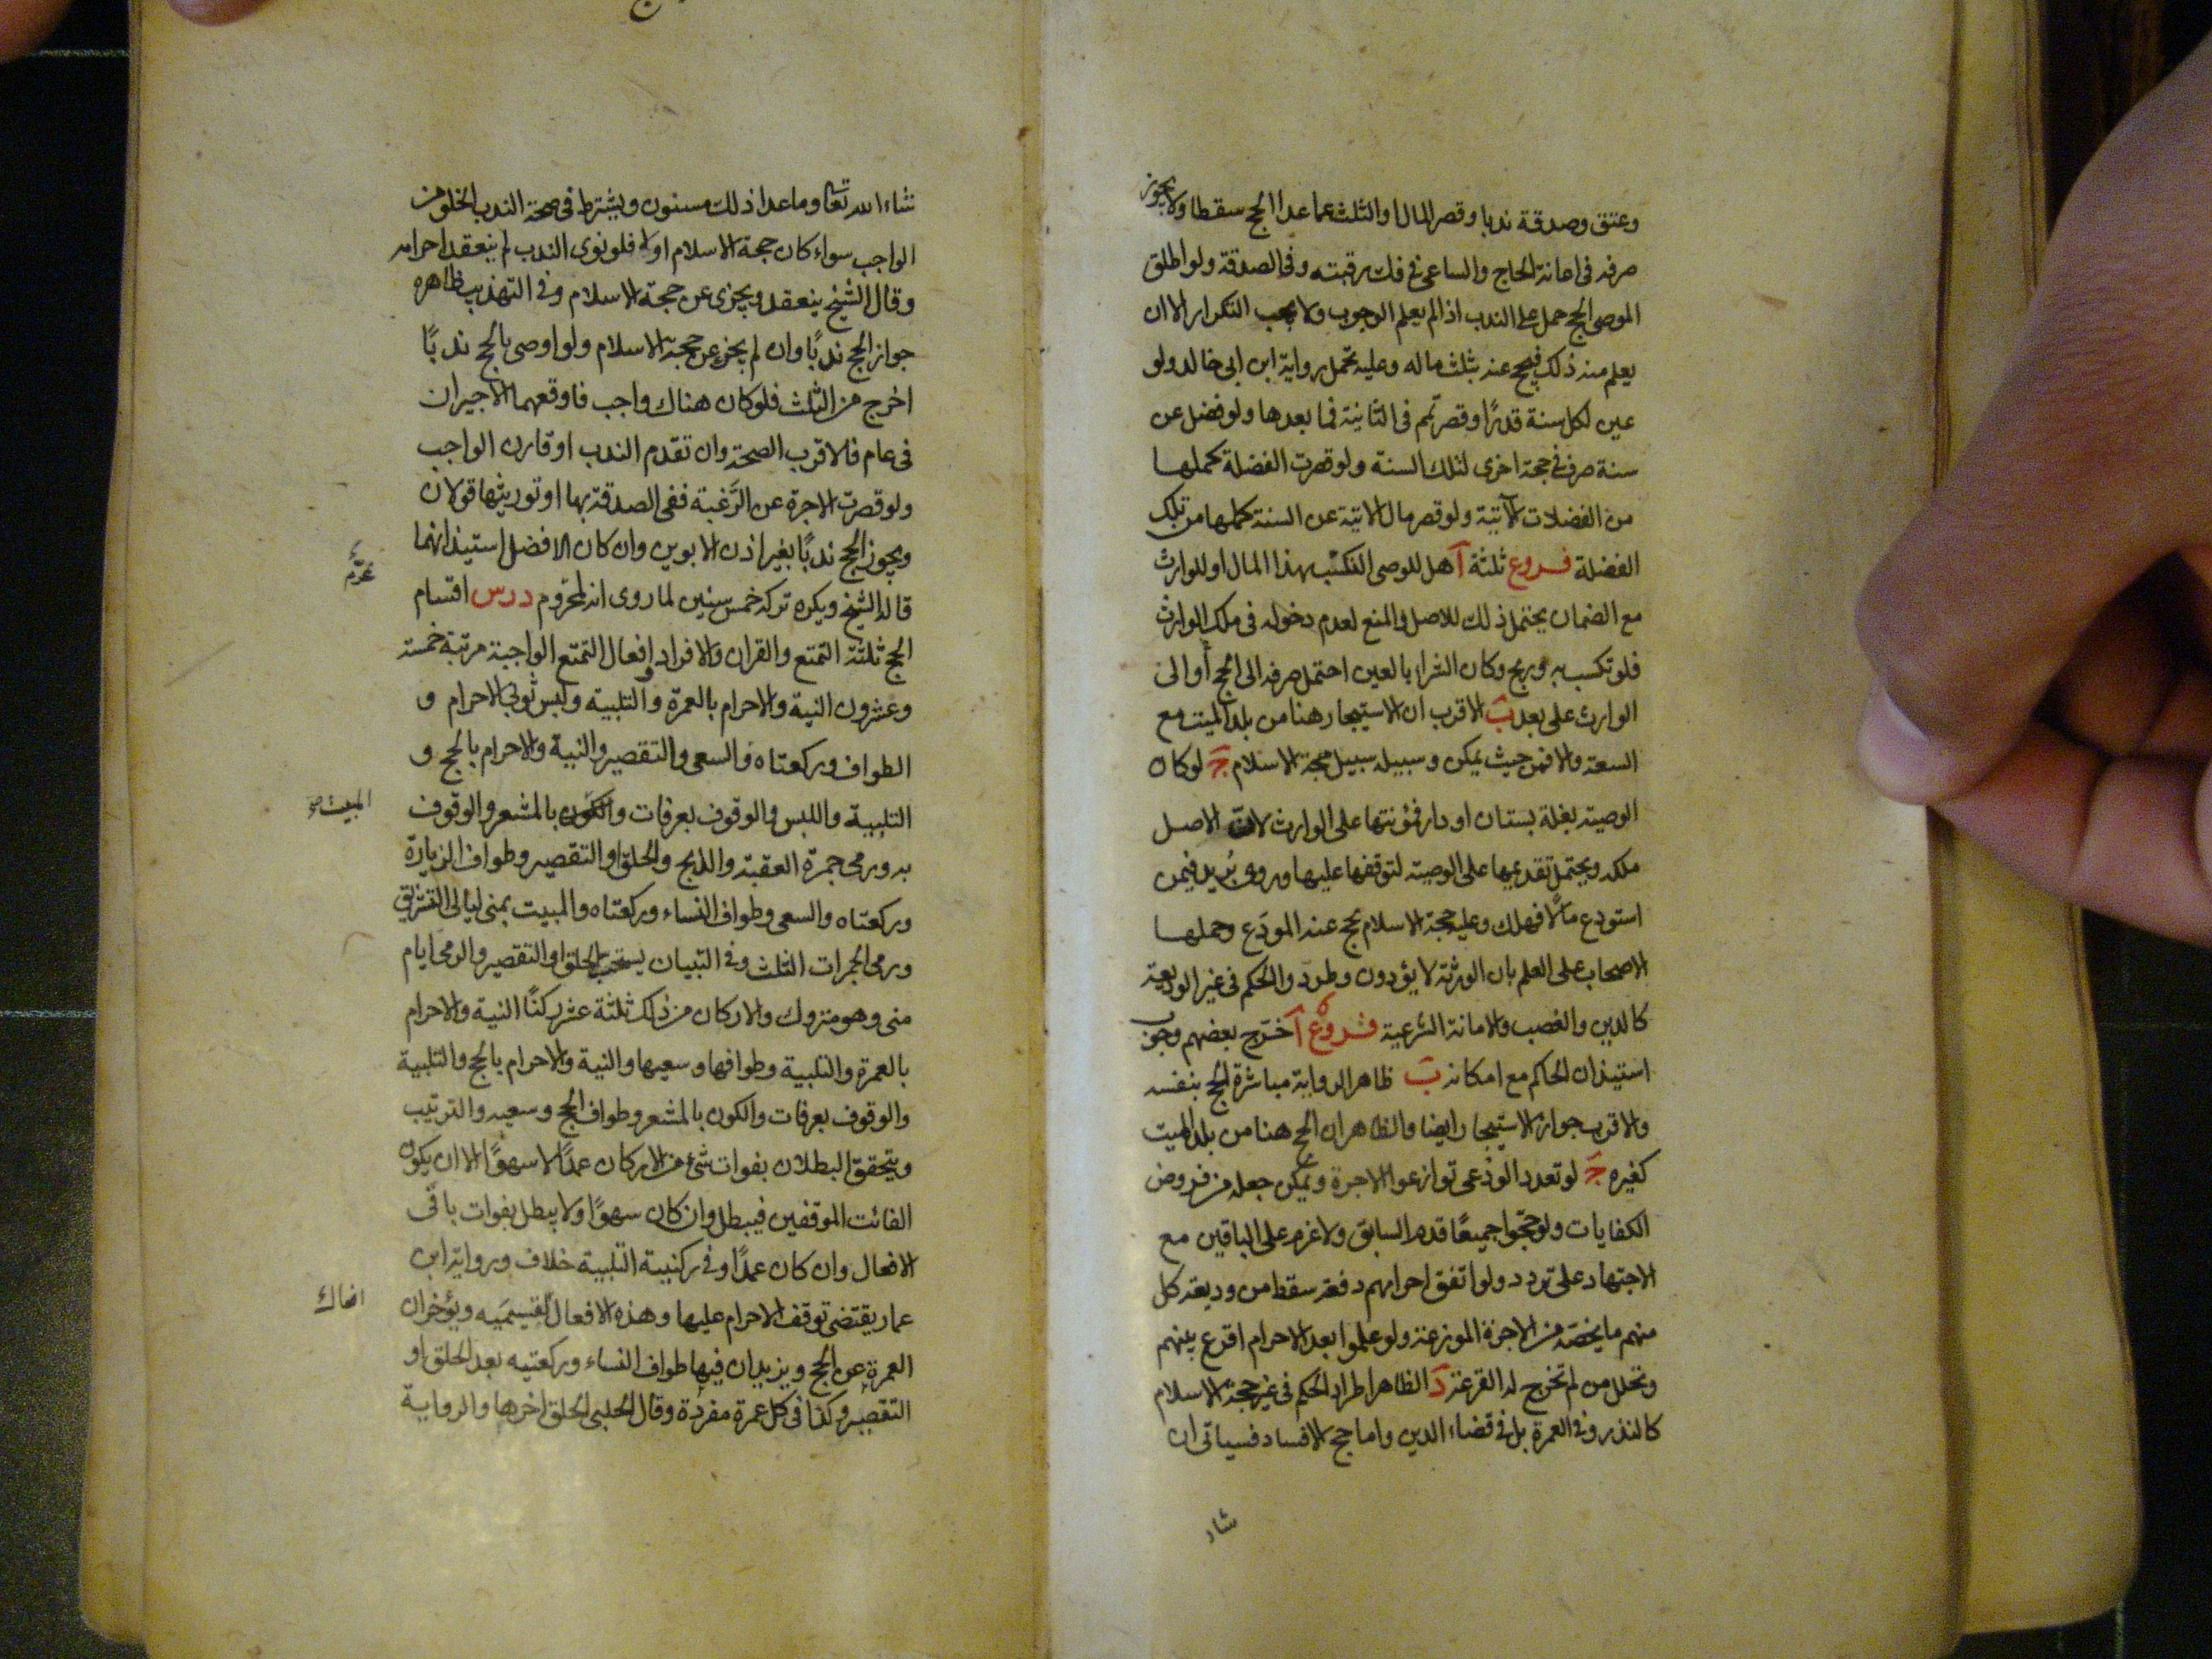 وعتق وصدقة ندبا وقصر المال او الثلث عما عدا الحج سقطا ولا يجوز
صرفه فى اعانة الحاج والساعى فى فك رقبته وفى الصدقة ولو اطلق
الموصى الحج حمل على الندب اذا لم يعلم الوجوب ولا يجب التكرار الا ان
يعلم منه ذلك فيحج عنه بثلث ماله وعليه تحمل رواية ابن ابى خالد ولو
عين لكل سنة قدرًا وقصر تمم فى الثانية فما بعدها ولو فضل عن
سنة صرف فى حجة اخرى لتلك السنة ولو قصرت الفضلة كملها
من الفضلات الآتية ولو قصر مال الاتية عن السنة كملها من تلك
الفضلة فروع ثلثة آ هل للوصى التكسّب بهذا المال او للوارث
مع الضمان يحتمل ذلك للاصل والمنع لعدم دخوله فى ملك الوارث
فلو تكسب به وربح وكان الشراء بالعين احتمل صرفه الى الحج أو الى
الوارث على بعد بَ الاقرب ان الاستيجار هنا من بلد الميت مع
السعة والا فمن حيث يمكن وسبيله سبيل حجة الاسلام جَ لو كان
الوصية بغلة بستان او دار فمؤنتها على الوارث لان الاصل
ملكه ويحتمل تقديمها على الوصية لتوقفها عليها وروى بُريد فيمن
استودع مالًا فهلك وعليه حجة الاسلام يحج عنه المودَع وحملها
الاصحاب على العلم بان الورثة لا يؤدون وطرد والحكم فى غير الوديعة
كالدين والغصب والامانة الشرعية فروع آ خرّج بعضهم وجوب
استيذان الحاكم مع امكانه بَ ظاهر الرواية مباشرة الحج بنفسه
والاقرب جواز الاستيجار ايضا والظاهر ان الحج هنا من بلد الميت
كغيره جَ لو تعدد الودعى توازعوا الاجرة ويمكن جعله من فروض
الكفايات ولو حجّوا جميعًا قدم السابق ولا غرم على الباقين مع
الاجتهاد على تردد ولو اتفق احرامهم دفعة سقط من وديعة كل
منهم ما يخصّه من الاجرة الموزعة ولو علموا بعد الاحرام اقرع بينهم
وتحلل من لم تخرج له القرعة دَ الظاهر اطراد الحكم فى غير حجة الاسلام
كالنذر وفى العمرة بل فى قضاء الدين واما حج الافساد فسياتى ان
شاء
شاء الله تعالى وما عدا ذلك مسنون ويشترط فى صحة الندب الخلو من
الواجب سواء كان حجة الاسلام اولا فلو نوى الندب لم ينعقد احرامه
وقال الشيخ ينعقد ويجزى عن حجة الاسلام وفى التهذيب ظاهره
جواز الحج ندبًا وان لم يجز عن حجة الاسلام ولو اوصى بالحج ندبًا
اخرج من الثلث فلو كان هناك واجب فاوقعهما الاجيران
فى عام فالاقرب الصحة وان تقدم الندب او قارن الواجب
ولو قصرت الاجرة عن الرّغبة ففى الصدقة بها او توريثها قولان
ويجوز الحج ندبًا بغير اذن الابوين وان كان الافضل استيذانهما
قاله الشيخ ويكره تركه خمس سنين لما روى انه لمحروم درس اقسام
الحج ثلثة التمتع والقران والافراد وافعال التمتع الواجبة مرتبة خمسة
وعشرون النية والاحرام بالعمرة والتلبية ولبس ثوبى الاحرام و
الطواف وركعتاه والسعى والتقصير والنية والاحرام بالحج و
التلبية واللبس والوقوف بعرفات والكون بالمشعر والوقوف
المبيت
به ورمى جمرة العقبة والذبح والحلق او التقصير وطواف الزيارة
وركعتاه والسعى وطواف النساء وركعتاه والمبيت بمنى ليالى التشريق
ورمى الجمرات الثلث وفى التبيان يستحب الحلق او التقصير والرمى ايام
منى وهو متروك والاركان من ذلك ثلثة عشر ركنًا النية والاحرام
بالعمرة والتلبية وطوافها وسعيها والنية والاحرام بالحج والتلبية
والوقوف بعرفات والكون بالمشعر وطواف الحج وسعيه والترتيب
ويتحقق البطلان بفوات شئ من الاركان عمدًا لا سهوًا الا ان يكون
الفائت الموقفين فيبطل وان كان سهوًا ولا يبطل بفوات باقى
الافعال وان كان عمدًا وفى ركنية التلبية خلاف ورواية ابن
عمار يقتضى توقف الاحرام عليها وهذه الافعال لقسيميه ويؤخران
العمرة عن الحج ويزيدان فيها طواف النساء وركعتيه بعد الحلق او
التقصير وكذا فى كل عمرة مفردة وقال الحلبى الحلق اخرها والرواية